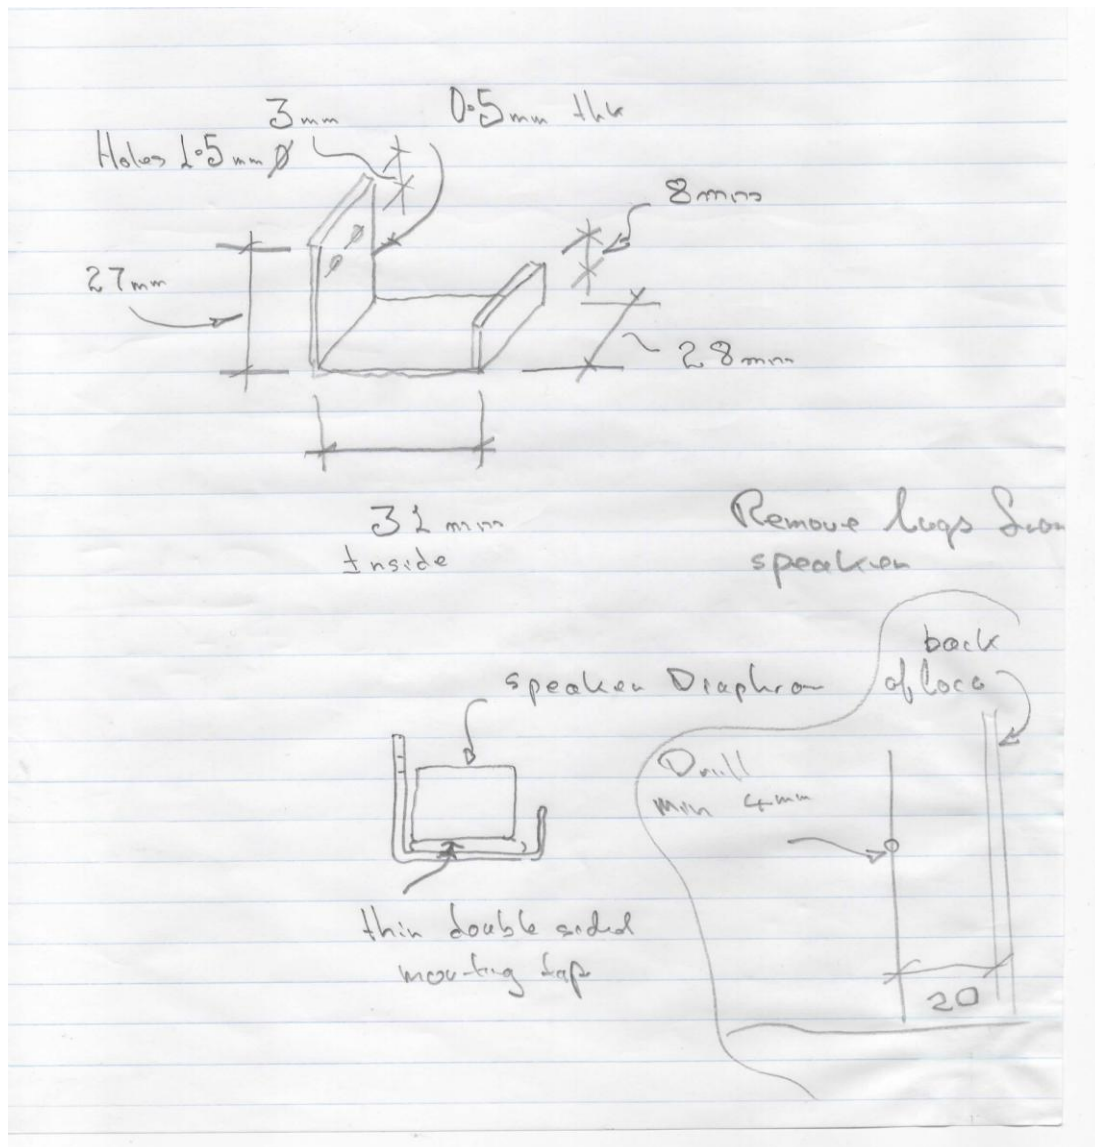 3mm
0.5mm thk
Holes 1.5mm Ø
8mm
27mm
28mm
31mm
Inside
Remove lugs from
speaker
back
of loco
speaker Diaphram
Drill
min 4mm
thin double sided
mounting tap
20